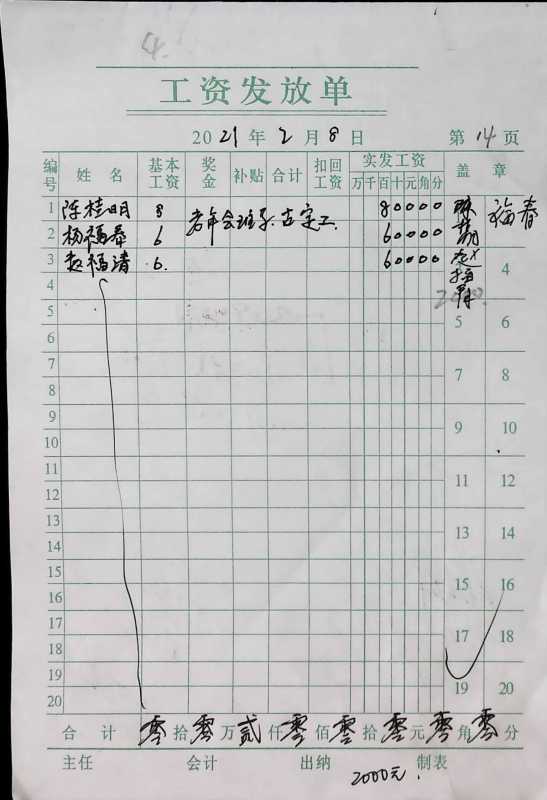 工资发放单
2021年2月8日 第14页
编号 姓名 基本工资 奖金 补贴 合计 扣回工资 实发工资 盖章
万千百十元角分
1 陈桂明 8 80000
2 杨福春 6 60000 福春
3 赵福清 6. 60000
4 4
5 5 6
6
7 7 8
8
9 9 10
10
11 11 12
12
13 13 14
14
15 15 16
16
17 17 18
18
19 19 20
20
合计 零拾零万贰仟零佰零拾零元零角零分
主任 会计 出纳 制表
2000元.